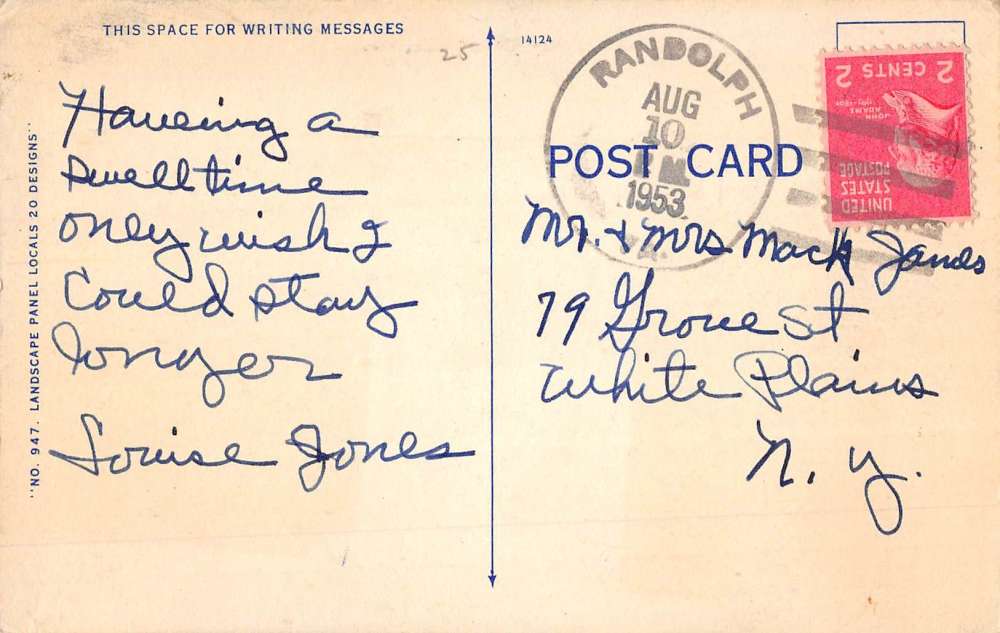 THIS SPACE FOR WRITING MESSAGES
25
Haveing a
swell time
only wish I
Could stay
longer
Louise Jones
"NO. 947. LANDSCAPE PANEL LOCALS 20 DESIGNS"
14124
RANDOLPH
AUG
10
1953
2 CENTS 2
JOHN
ADAMS
UNITED
STATES
POSTAGE
POST CARD
Mr. + Mrs Mack Jands
79 Grove St
White Plains
N. Y.